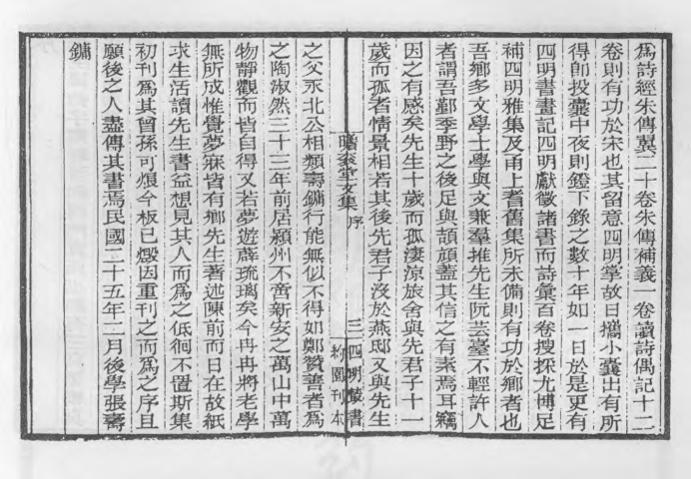 為詩經朱傳翼二十卷朱傳補義一卷讀詩偶記十二
卷則有功於宋也其留意四明掌故日攜小囊出有所
得即投囊中夜則鐙下錄之數十年如一日於是更有
四明書畫記四明獻徵諸書而詩彙百卷搜採尤博足
補四明雅集及甬上耆舊集所未備則有功於鄉者也
吾鄉多文學士學與文兼羣推先生阮芸臺不輕許人
者謂吾鄞季野之後足與頡頏蓋其信之有素焉耳竊
因之有感矣先生十歲而孤淒涼旅舍與先君子十一
歲而孤者情景相若其後先君子沒於燕邸又與先生
瞻袞堂文集 序 三 四明叢書
約園刊本
之父永北公相類壽鏞行能無似不得如鄭贊善者為
之陶淑然三十三年前居潁州不啻新安之萬山中萬
物靜觀而皆自得又若夢遊薜琉璃矣今冉冉將老學
無所成惟覺夢寐皆有鄉先生著述陳前而日在故紙
求生活讀先生書益想見其人而為之低徊不置斯集
初刊為其曾孫可烺今板已燬因重刊之而為之序且
願後之人盡傳其書焉民國二十五年二月後學張壽
鏞